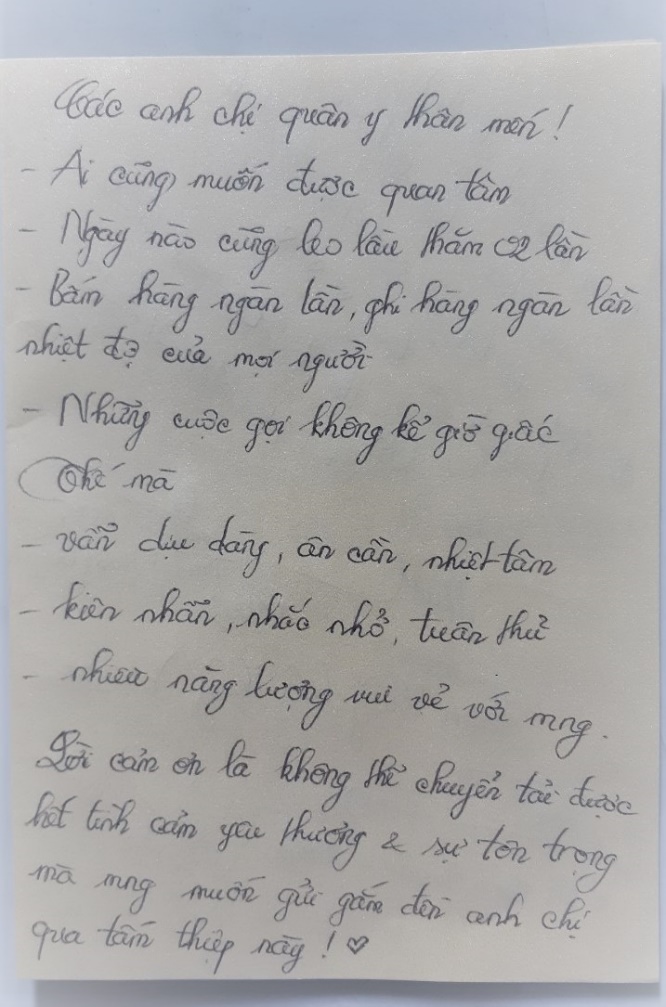 Các anh chị quân y thân mến!
- Ai cũng muốn được quan tâm
- Ngày nào cũng leo lầu thăm 02 lần
- Bấm hàng ngàn lần, ghi hàng ngàn lần
nhiệt độ của mọi người
- Những cuộc gọi không kể giờ giấc
Thế mà
- vẫn dịu dàng, ân cần, nhiệt tâm
- kiên nhẫn, nhắc nhở, tuân thủ
- nhiều năng lượng vui vẻ với mng.
Lời cảm ơn là không thể chuyển tải được
hết tình cảm yêu thương & sự tôn trọng
mà mng muốn gửi gắm đến anh chị
qua tấm thiệp này! ♡